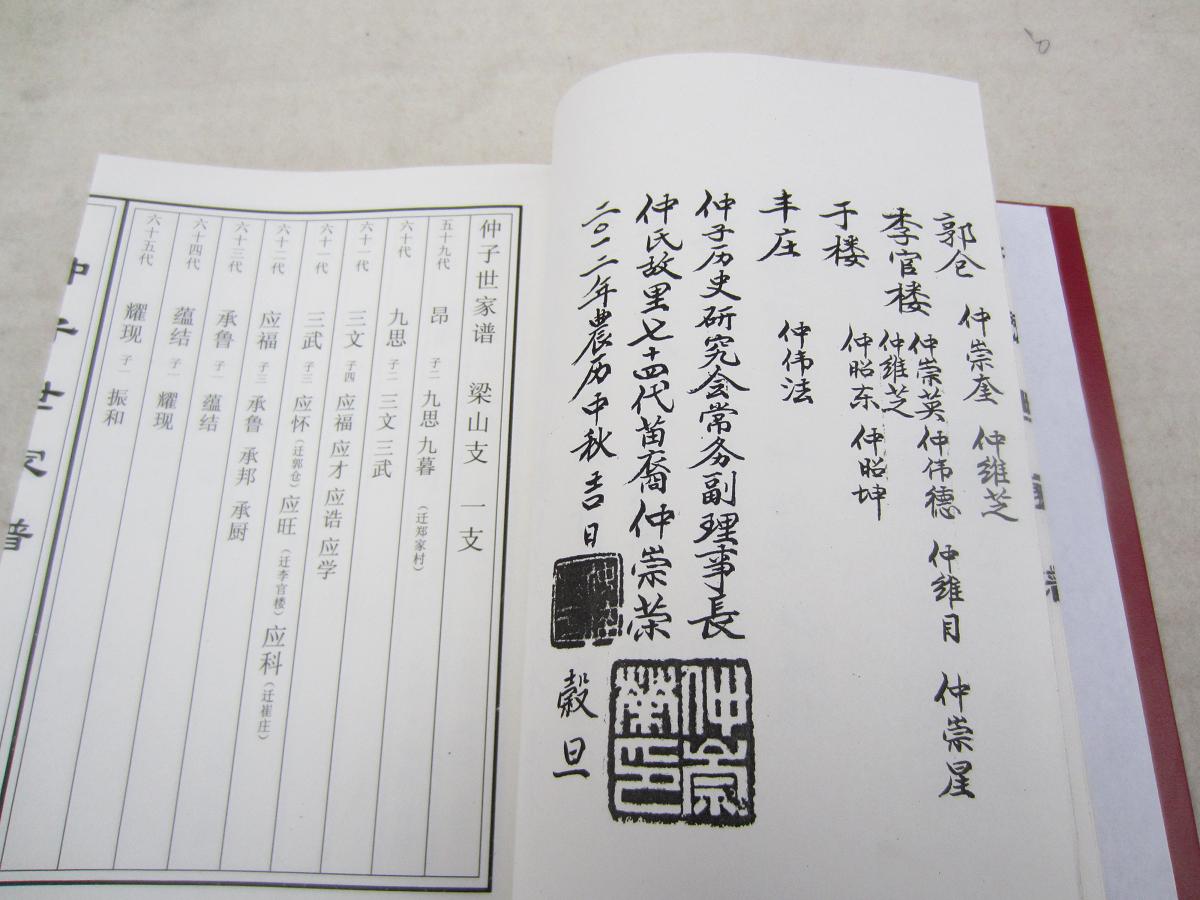 郭仓 仲崇奎 仲维芝
李官楼 仲崇英 仲伟德 仲维月 仲崇星
仲维芝
于楼 仲昭东 仲昭坤
丰庄 仲伟法
仲子历史研究会常务副理事長
仲氏故里七十四代苗裔仲崇荣
二〇一二年農历中秋吉日 穀旦
仲崇荣印
仲子世家谱 梁山支 一支
五十九代 昂 子二 九思 九暮(迁郑家村)
六十代 九思 子二 三文 三武
六十一代 三文 子四 应福 应才 应诰 应学
六十一代 三武 子三 应怀(迁郭仓) 应旺(迁李官楼) 应科(迁崔庄)
六十二代 应福 子三 承鲁 承邦 承厨
六十三代 承鲁 子一 蕴结
六十四代 蕴结 子一 耀现
六十五代 耀现 子一 振和
仲子世家谱